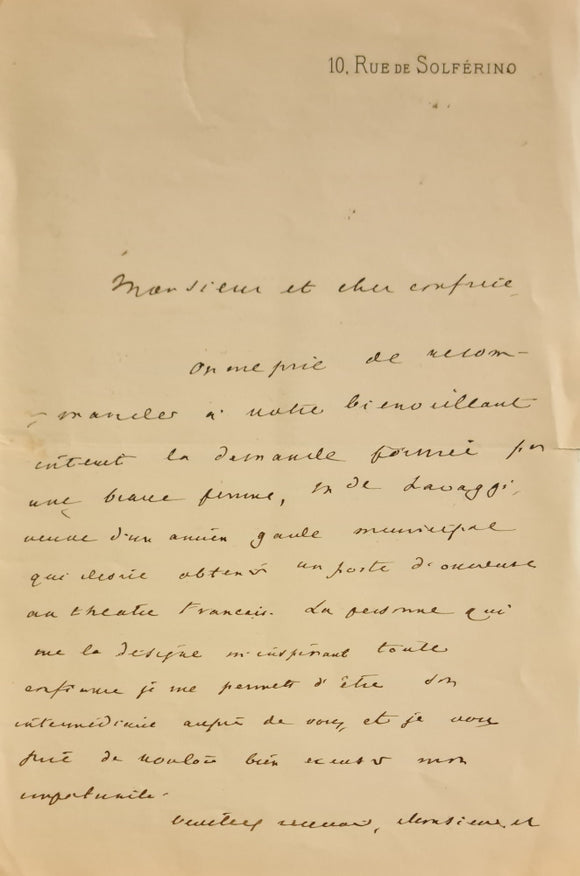 10, RUE DE SOLFÉRINO
Monsieur et cher confrère,
On me prie de recom-
-mander à votre bienveillant
intérêt la demande formée par
une brave femme, Mde Lavaggi,
veuve d'un ancien garde municipal
qui désire obtenir un poste d'ouvreuse
au théâtre Français. La personne qui
me la désigne m'inspirant toute
confiance je me permets d'être son
intermédiaire auprès de vous, et je vous
prie de vouloir bien excuser mon
importunité.
Veuillez recevoir, Monsieur et